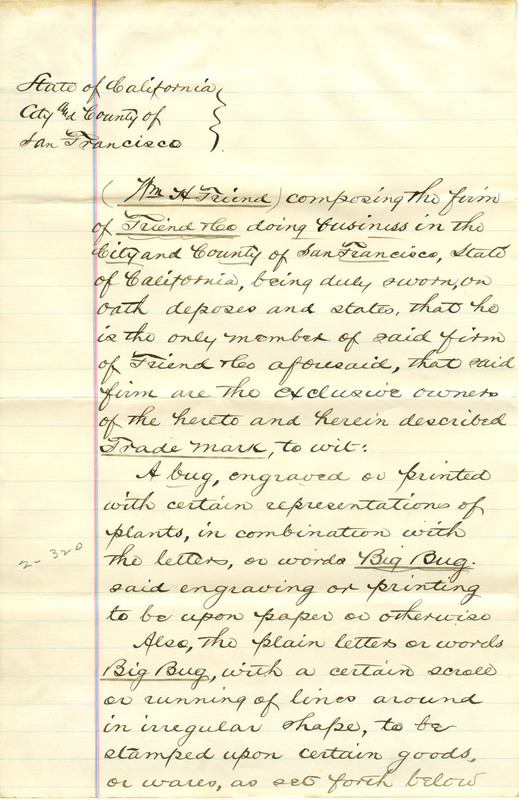 State of California
City and County of
San Francisco
(Wm H Friend) composing the firm
of Friend & Co doing business in the
City and County of San Francisco, State
of California, being duly sworn, on
oath deposes and states, that he
is the only member of said firm
of Friend & Co aforesaid, that said
firm are the exclusive owners
of the hereto and herein described
Trade Mark, to wit:
A bug, engraved or printed
with certain representations of
plants, in combination with
the letters, or words Big Bug.
said engraving or printing
to be upon paper or otherwise
Also, the plain letters or words
Big Bug, with a certain scroll
or running of lines around
in irregular shape, to be
stamped upon certain goods,
or wares, as set forth below
2-320